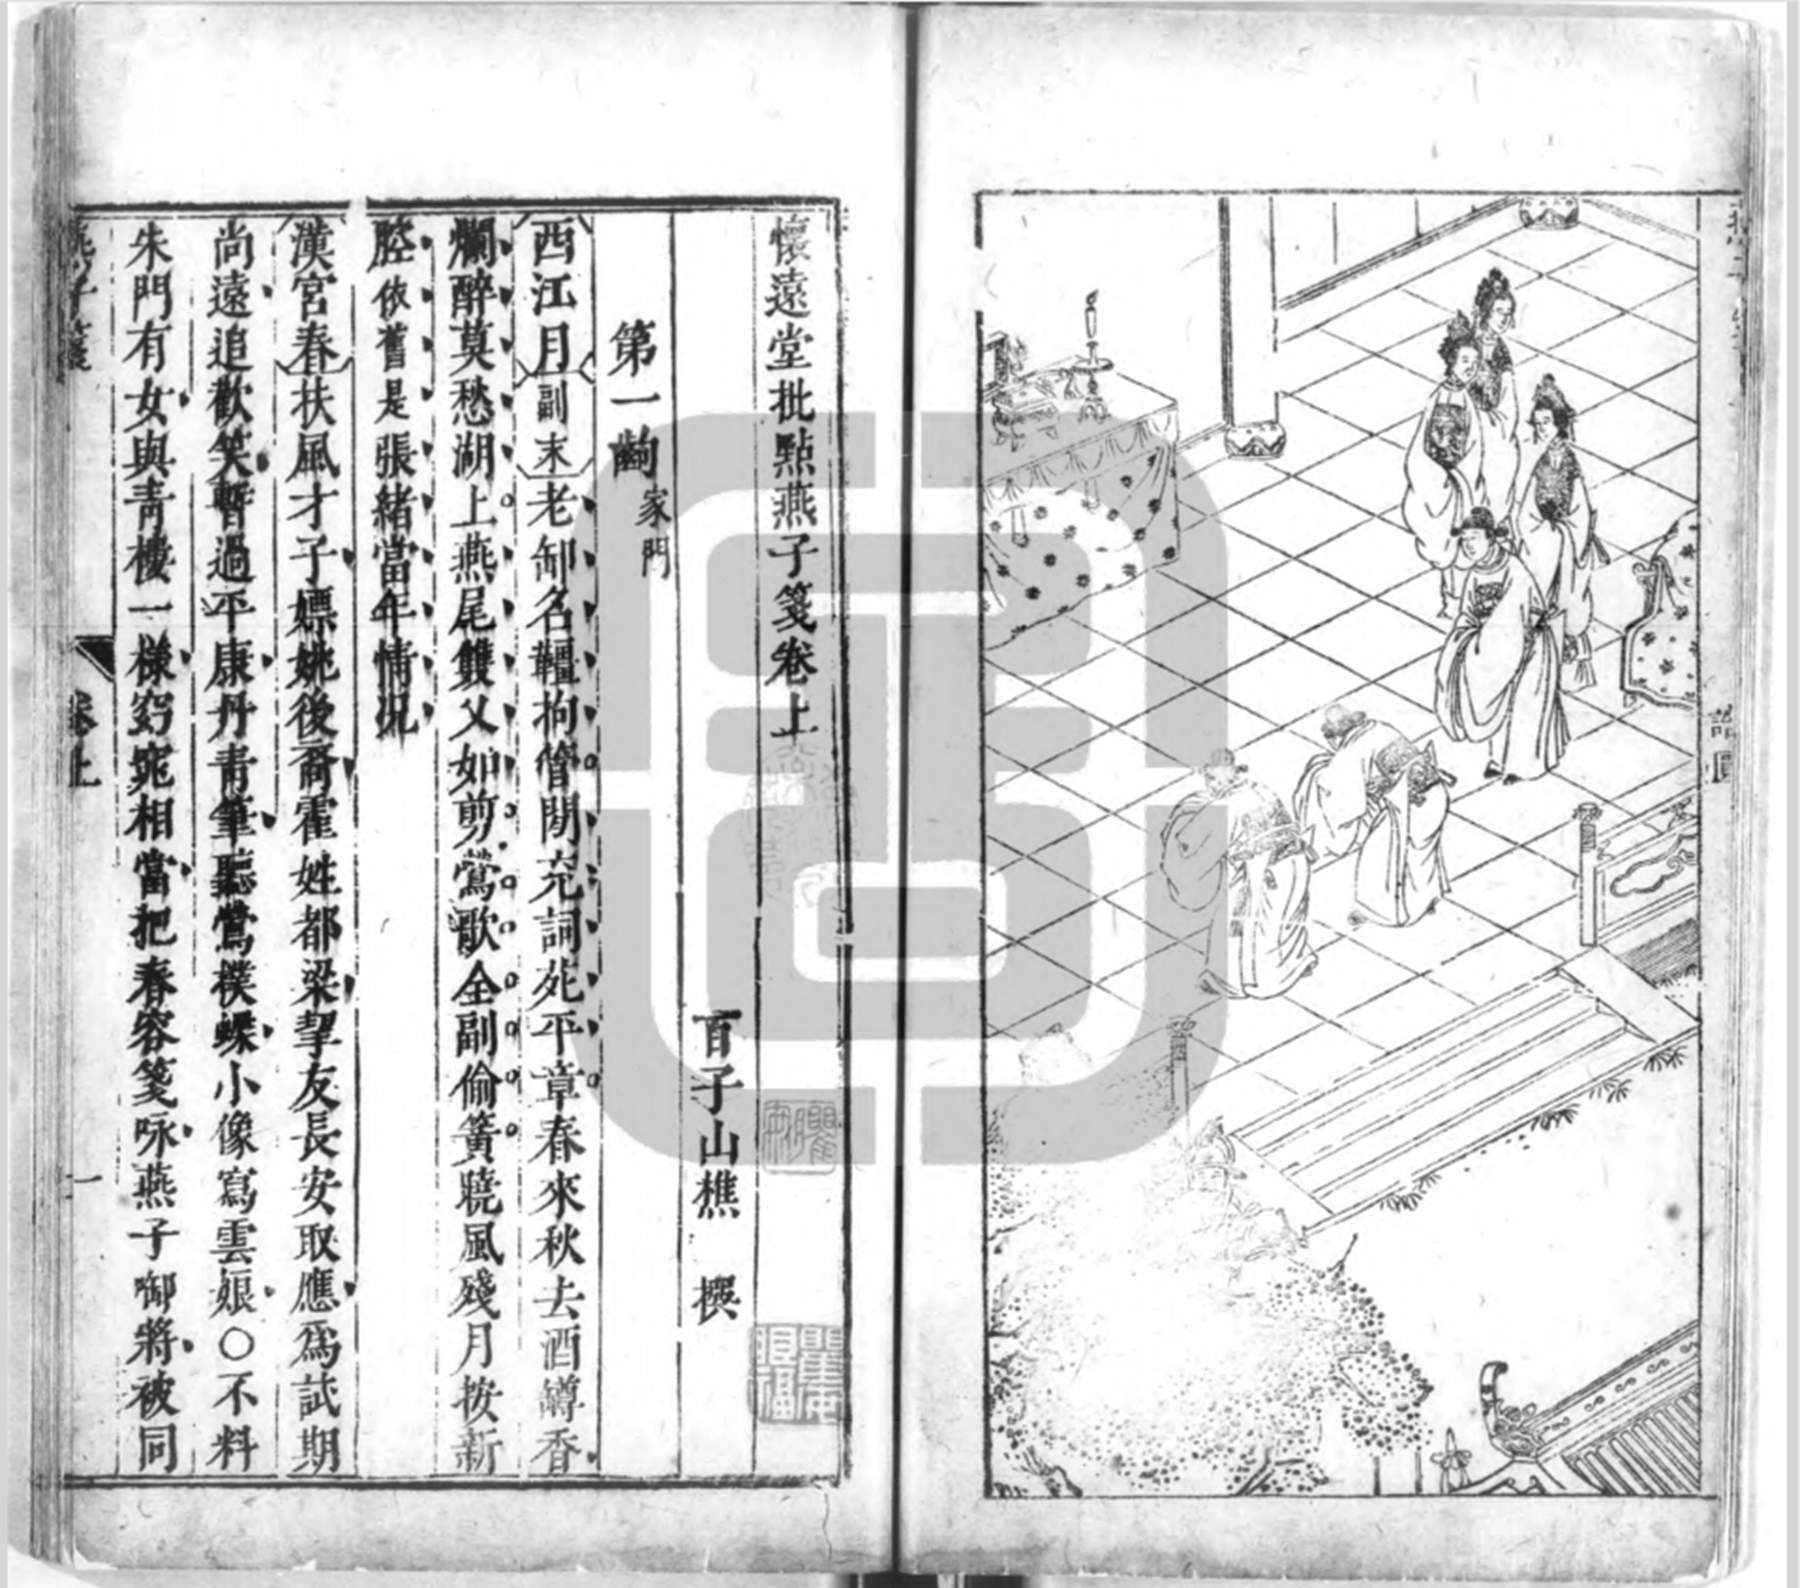 誥圓
懷遠堂批點燕子箋卷上
百子山樵　撰
第一齣家門
西江月副末老卸名韁拘管閑充詞苑平章春來秋去酒罇香
爛醉莫愁湖上燕尾雙叉如剪鶯歌全副偷簧曉風殘月按新
腔依舊是張緒當年情况
漢宮春扶風才子嫖姚後裔霍姓都梁挈友長安取應爲試期
尚遠追歡笑暫過平康丹青筆聽鶯撲蝶小像寫雲娘○不料
朱門有女與青樓一樣窈窕相當把春容箋咏燕子啣將被同
燕子箋
卷上
一